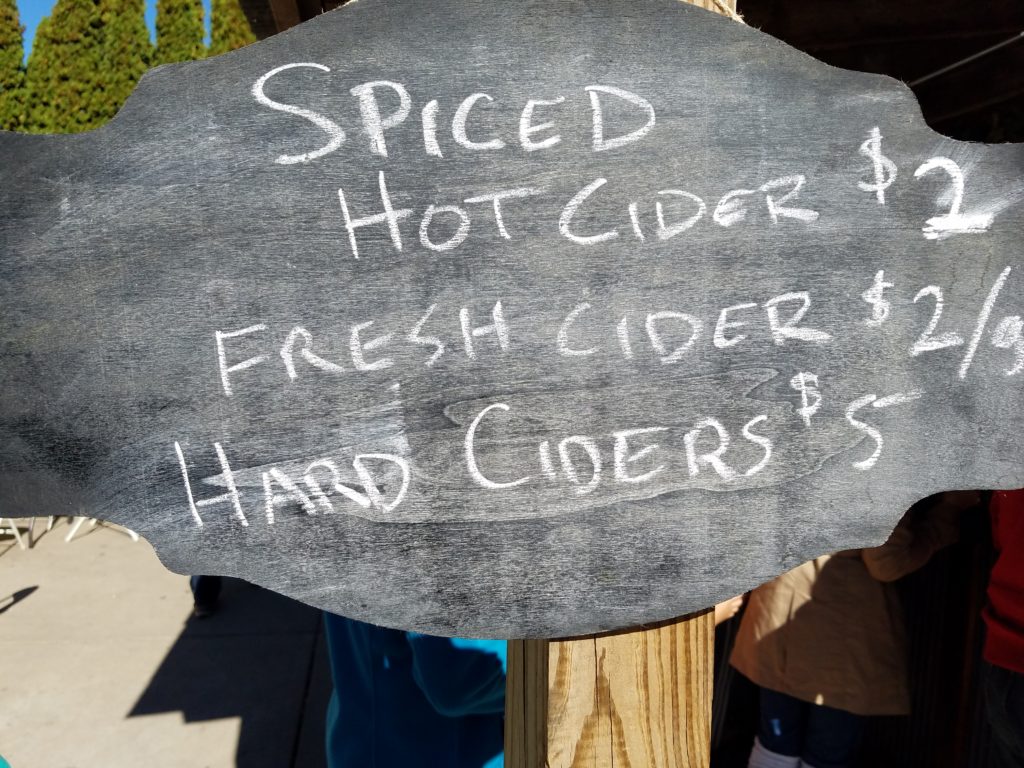 SPICED
HOT CIDER $2
FRESH CIDER $2/g
HARD CIDERS $5